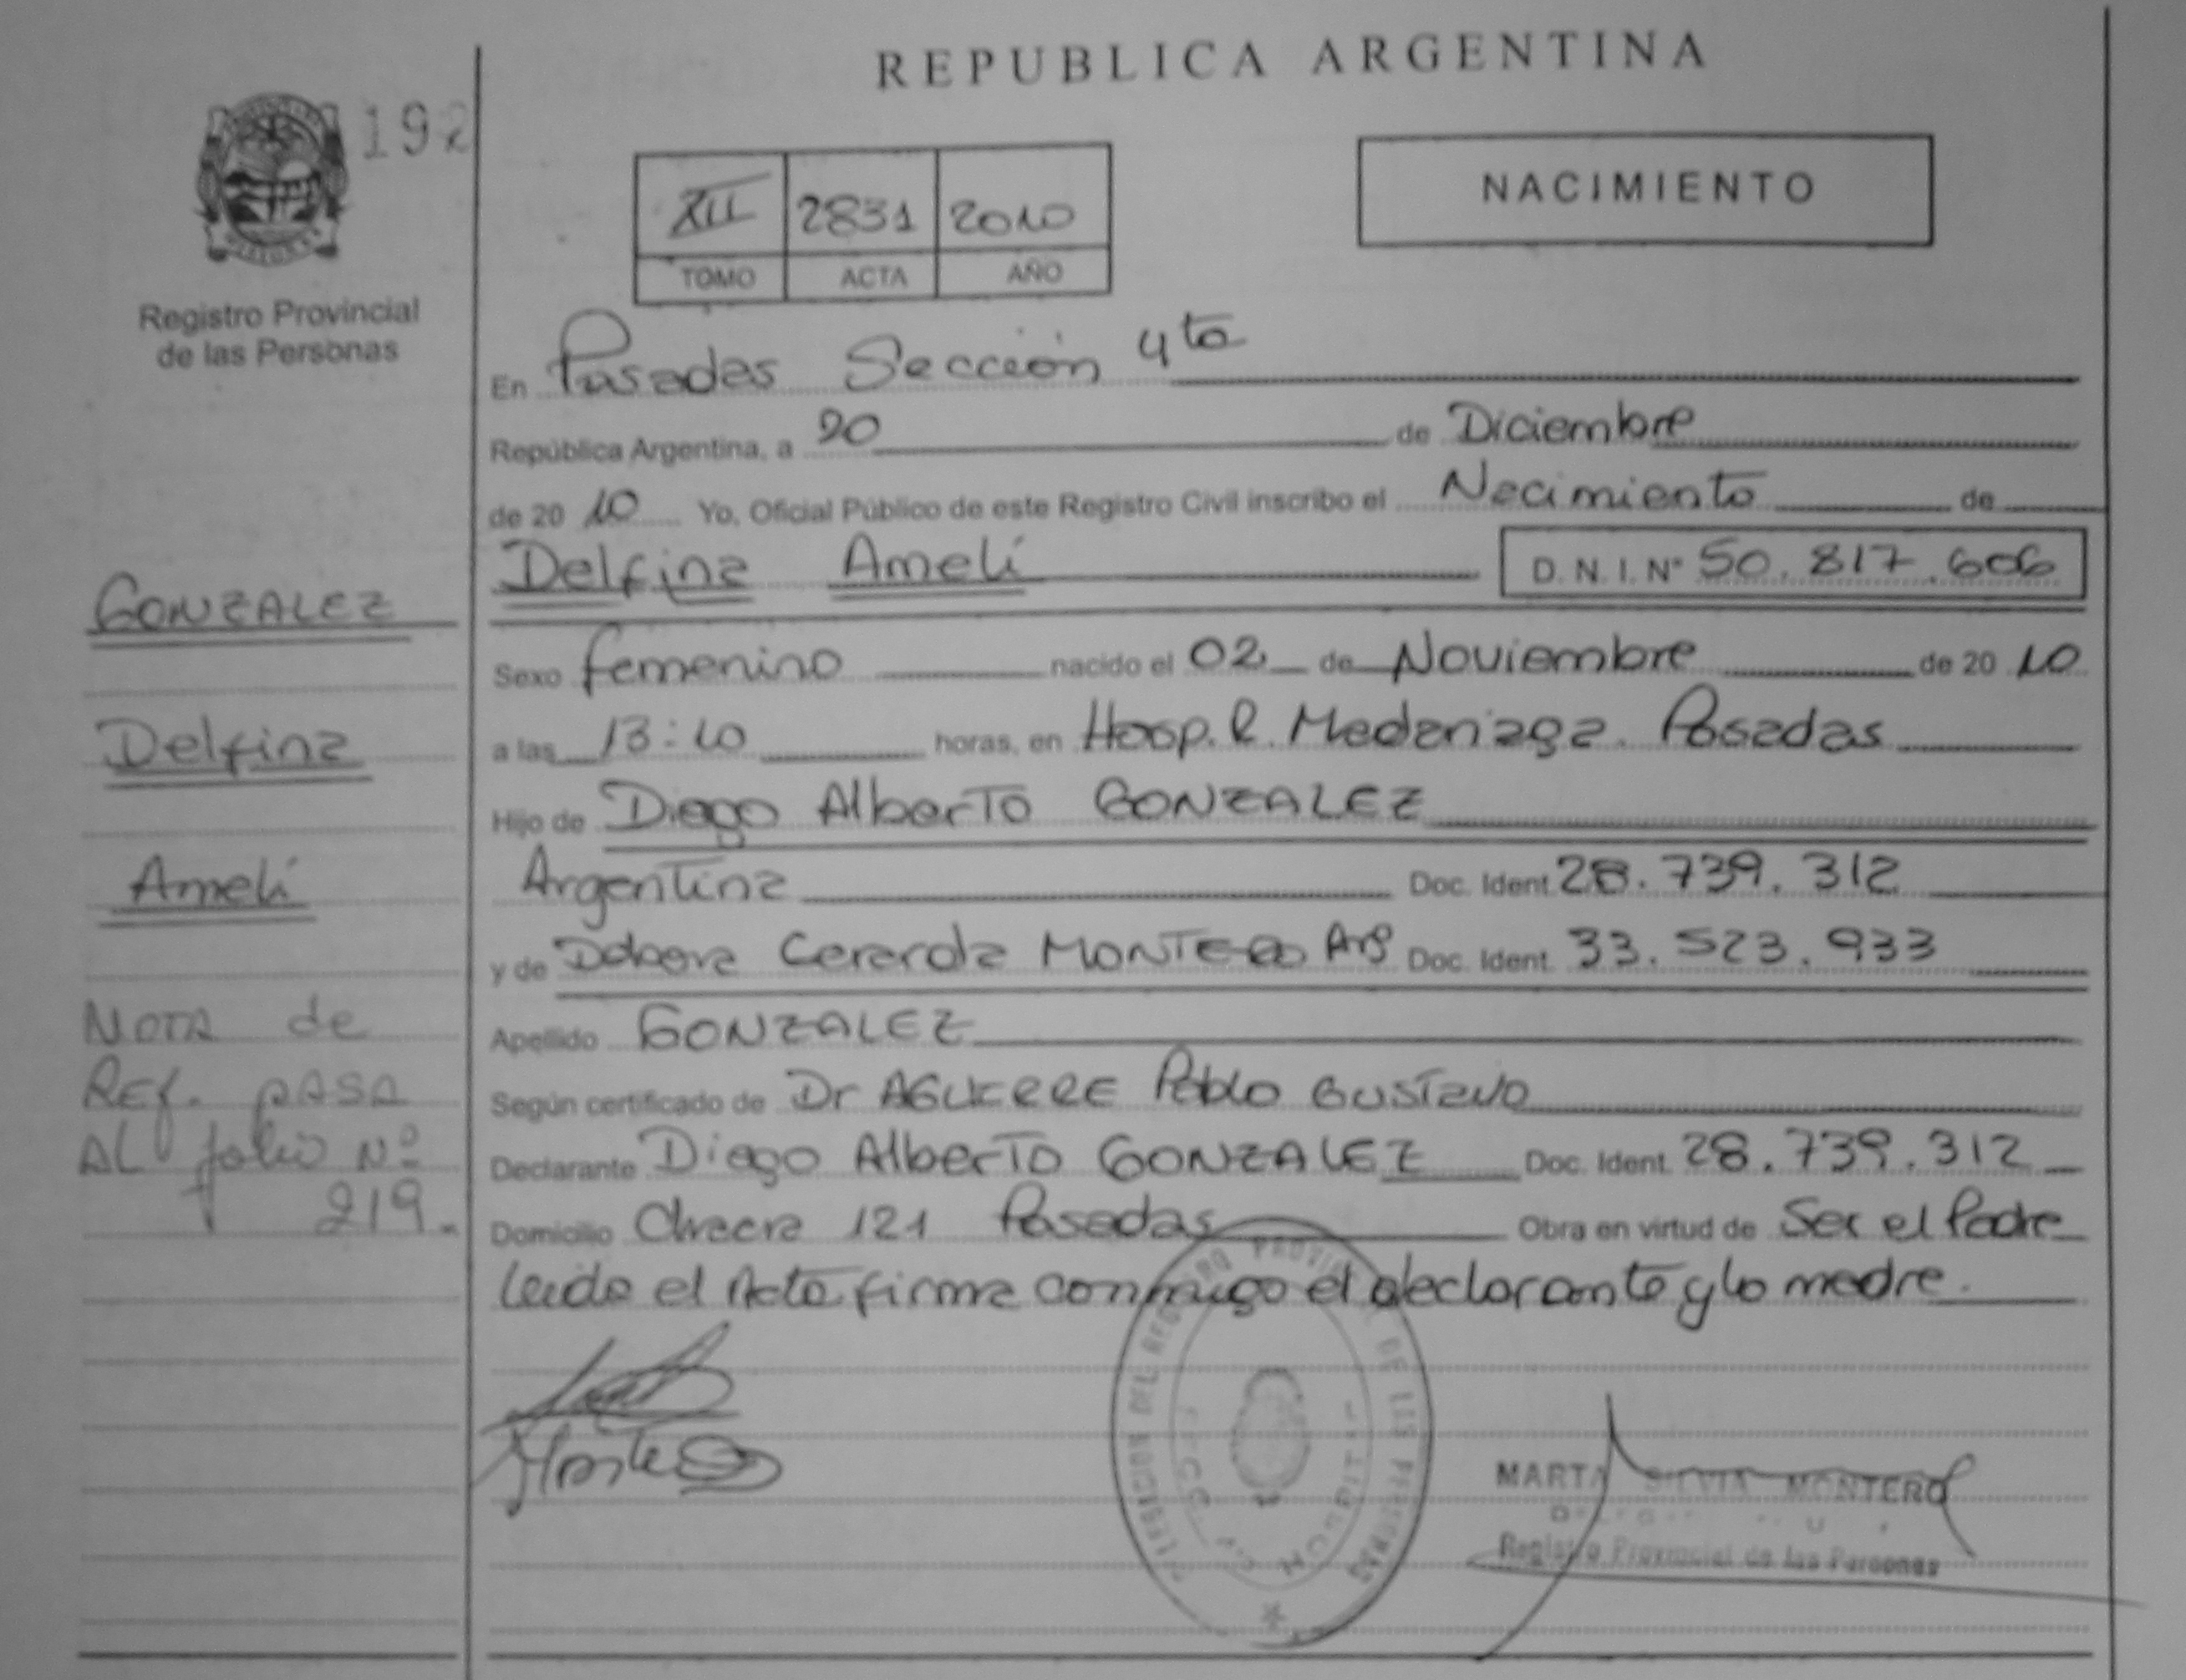 REPUBLICA ARGENTINA
192
NACIMIENTO
XII 2831 2010
TOMO ACTA AÑO
Registro Provincial
de las Personas
En Posadas Sección 4ta
República Argentina, a 20 de Diciembre
de 20 10 Yo, Oficial Público de este Registro Civil inscribo el Nacimiento de
Delfina Amelí D.N.I. Nº 50.817.606
GONZALEZ
Sexo femenino nacido el 02 de Noviembre de 20 10
Delfina
a las 13:10 horas, en Hosp. R. Madariaga. Posadas
Hijo de Diego Alberto GONZALEZ
Amelí
Argentina Doc. Ident. 28.739.312
y de MONTERO Arg Doc. Ident. 33.523.933
NOTA de
REF. PASA
AL folio Nº
219.
Apellido GONZALEZ
Según certificado de Dr AGUIRRE Pablo Gustavo
Declarante Diego Alberto GONZALEZ Doc. Ident. 28.739.312
Domicilio Chacra 121 Posadas Obra en virtud de Ser el Padre
Leida el Acta firma conmigo el declarante y la madre.
DEL REGISTRO PROVINCIAL DE LAS PERSONAS
MARTA SILVIA MONTERO
Registro Provincial de las Personas